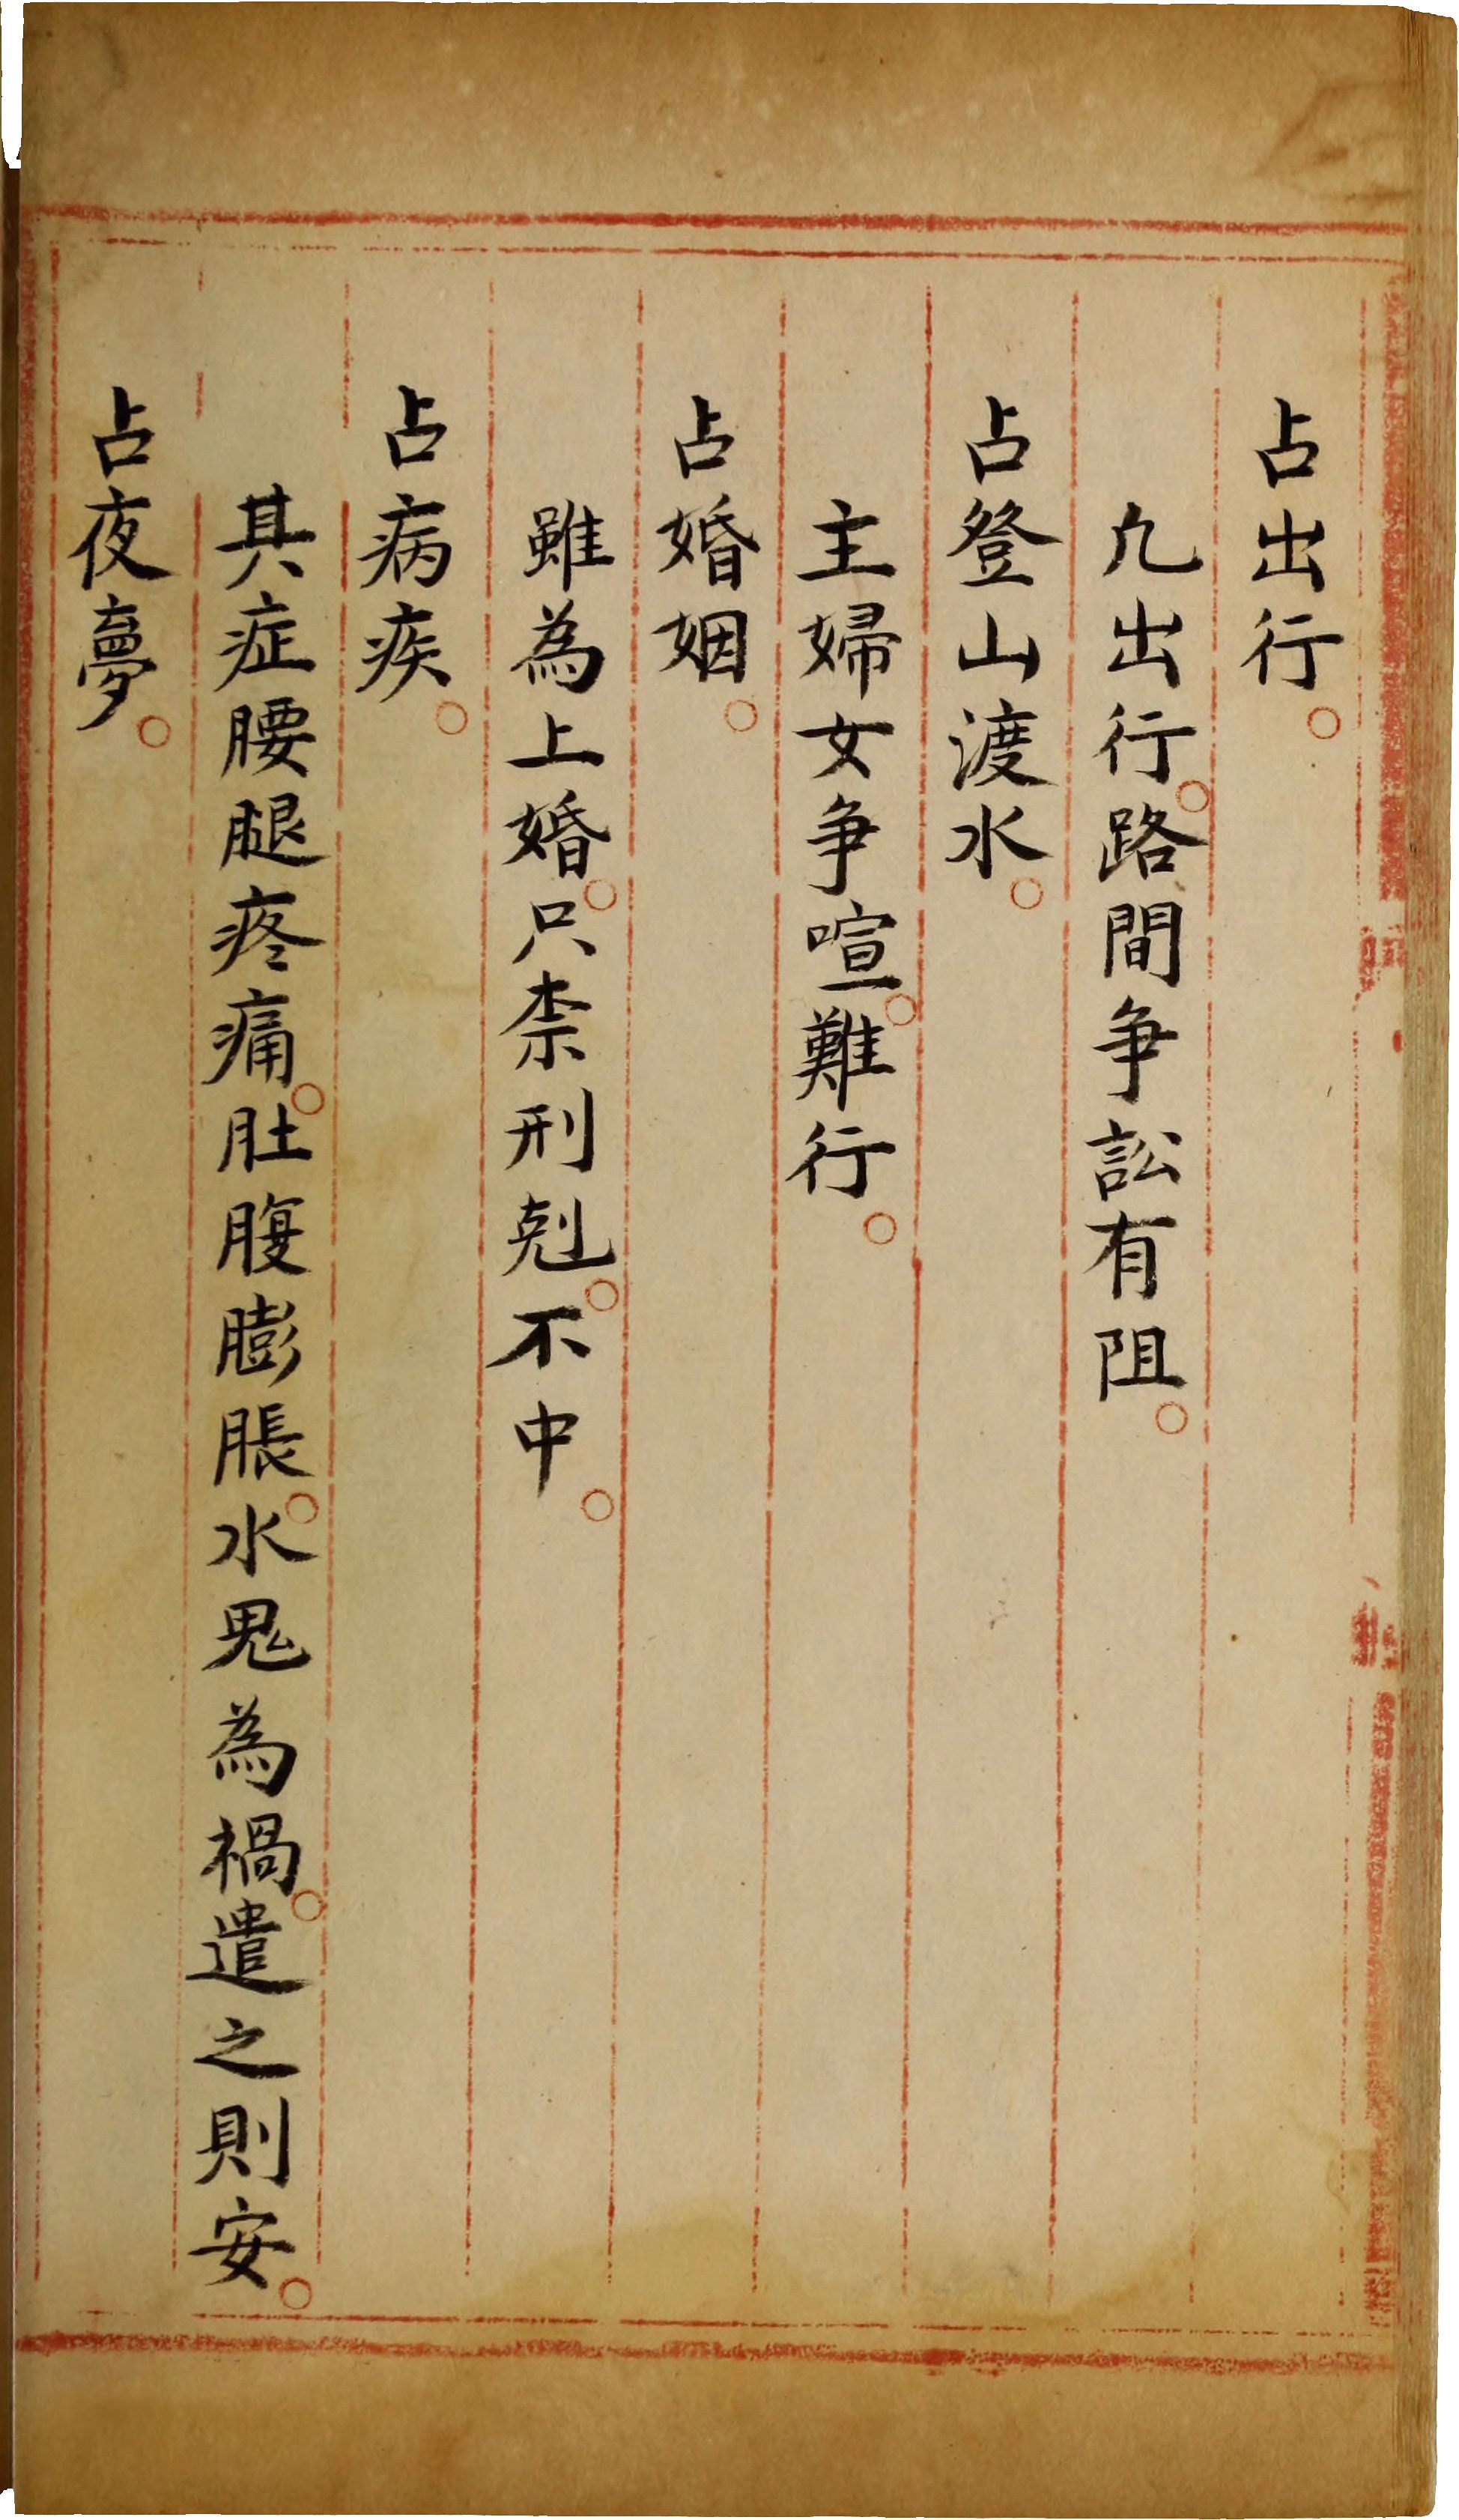 占出行。
凡出行。路間争訟有阻。
占登山渡水。
主婦女争喧。難行。
占婚姻。
雖為上婚。只柰刑剋。不中。
占病疾。
其症腰腿疼痛。肚腹膨脹。水鬼為禍。遣之則安。
占夜夢。